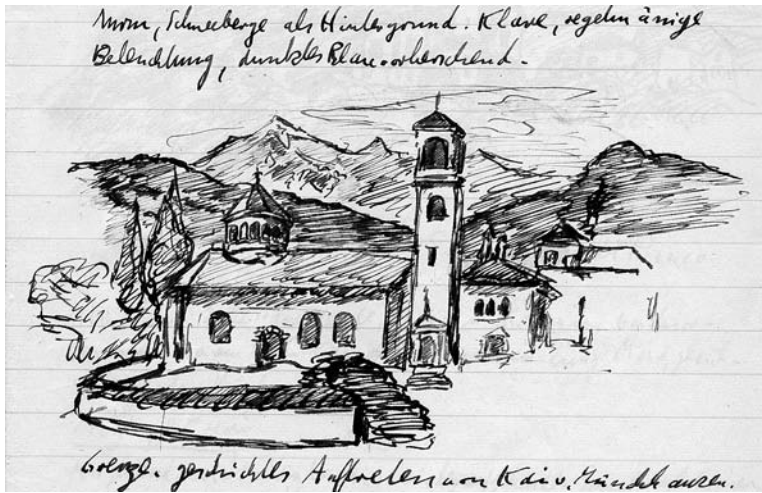 Schneeberge als Hintergrund. Klare, regelmäßige
Beleuchtung, dunkles Blau vorherrschend.
geschicktes Auftreten von Kai v. Münchhausen.